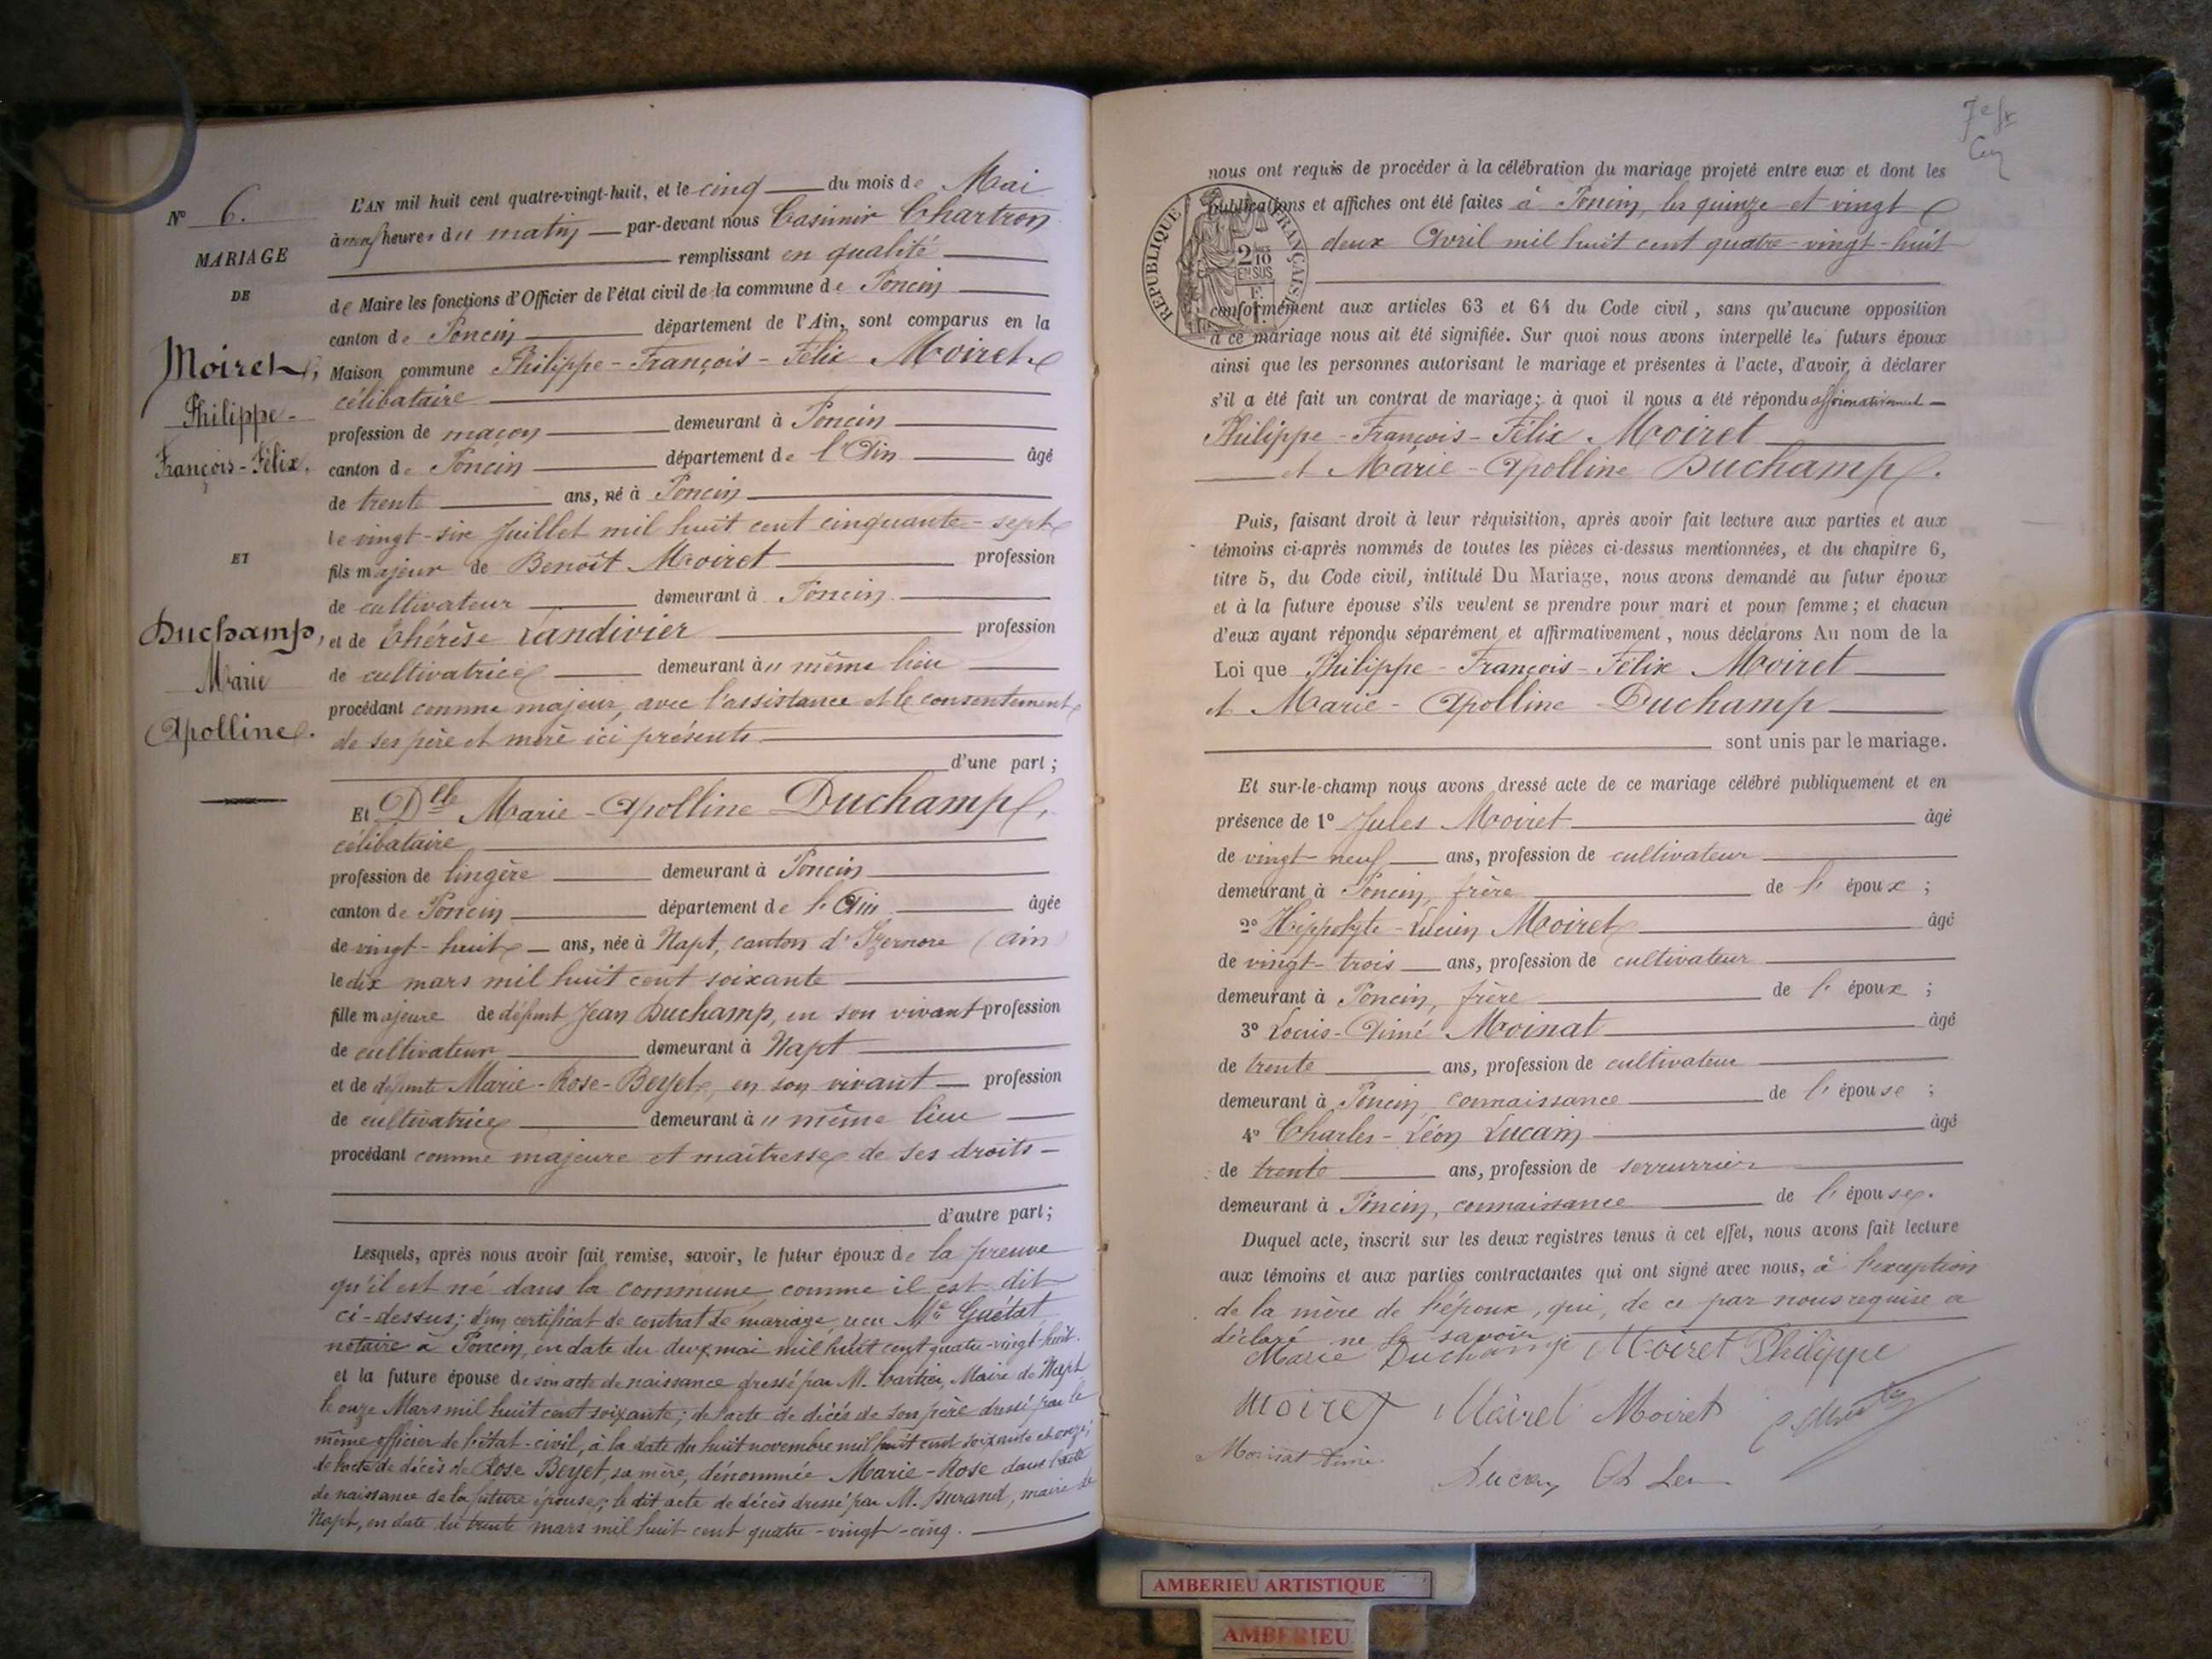 N° 6.
MARIAGE
DE
Moiret,
Philippe-
François-Félix.
ET
Duchamp,
Marie
Apolline.
L'AN mil huit cent quatre-vingt-huit, et le cinq du mois de Mai
à neuf heures du matin par-devant nous Casimir Chartron
remplissant en qualité
de Maire les fonctions d'Officier de l'état civil de la commune de Poncin
canton de Poncin département de l'Ain, sont comparus en la
Maison commune Philippe-François-Félix Moiret
célibataire
profession de maçon demeurant à Poncin
canton de Poncin département de l'Ain âgé
de trente ans, né à Poncin
le vingt-six Juillet mil huit cent cinquante-sept
fils majeur de Benoît Moiret profession
de cultivateur demeurant à Poncin
et de Thérèse Landivier profession
de cultivatrice demeurant à " même lieu
procédant comme majeur, avec l'assistance et le consentement
de ses père et mère ici présents
d'une part ;
Et Dlle Marie-Apolline Duchamp,
célibataire
profession de lingère demeurant à Poncin
canton de Poncin département de l'Ain âgée
de vingt-huit ans, née à Napt, canton d'Izernore (Ain)
le dix mars mil huit cent soixante
fille majeure de défunt Jean Duchamp, en son vivant profession
de cultivateur demeurant à Napt
et de défunte Marie-Rose-Beyet, en son vivant profession
de cultivatrice demeurant à " même lieu
procédant comme majeure et maîtresse de ses droits
d'autre part ;
Lesquels, après nous avoir fait remise, savoir, le futur époux de la preuve
qu'il est né dans la commune, comme il est dit
ci-dessus ; d'un certificat de contrat de mariage, reçu Me Guétat
notaire à Poncin, en date du deux mai mil huit cent quatre-vingt-huit.
et la future épouse de son acte de naissance dressé par M. Cartier, Maire de Napt
le onze Mars mil huit cent soixante ; de l'acte de décès de son père dressé par le
même officier de l'état-civil, à la date du huit novembre mil huit cent soixante et onze ;
de l'acte de décès de Rose Beyet, sa mère, dénommée Marie-Rose dans l'acte
de naissance de la future épouse ; le dit acte de décès dressé par M. Durand, maire de
Napt, en date du trente mars mil huit cent quatre-vingt-cinq.
nous ont requis de procéder à la célébration du mariage projeté entre eux et dont les
publications et affiches ont été faites à Poncin, les quinze et vingt
deux Avril mil huit cent quatre-vingt-huit
RÉPUBLIQUE FRANÇAISE
2/10
EN SUS
conformément aux articles 63 et 64 du Code civil, sans qu'aucune opposition
à ce mariage nous ait été signifiée. Sur quoi nous avons interpellé les futurs époux
ainsi que les personnes autorisant le mariage et présentes à l'acte, d'avoir à déclarer
s'il a été fait un contrat de mariage ; à quoi il nous a été répondu affirmativement
Philippe-François-Félix Moiret
et Marie-Apolline Duchamp.
Puis, faisant droit à leur réquisition, après avoir fait lecture aux parties et aux
témoins ci-après nommés de toutes les pièces ci-dessus mentionnées, et du chapitre 6,
titre 5, du Code civil, intitulé Du Mariage, nous avons demandé au futur époux
et à la future épouse s'ils veulent se prendre pour mari et pour femme ; et chacun
d'eux ayant répondu séparément et affirmativement, nous déclarons Au nom de la
Loi que Philippe-François-Félix Moiret
et Marie-Apolline Duchamp
sont unis par le mariage.
Et sur-le-champ nous avons dressé acte de ce mariage célébré publiquement et en
présence de 1° Jules Moiret âgé
de vingt-neuf ans, profession de cultivateur
demeurant à Poncin, frère de l'époux ;
2° Hippolyte-Lucien Moiret âgé
de vingt-trois ans, profession de cultivateur
demeurant à Poncin, frère de l'époux ;
3° Louis-Aimé Moinat âgé
de trente ans, profession de cultivateur
demeurant à Poncin, connaissance de l'épouse ;
4° Charles-Léon Lucain âgé
de trente ans, profession de serrurrier
demeurant à Poncin, connaissance de l'épouse.
Duquel acte, inscrit sur les deux registres tenus à cet effet, nous avons fait lecture
aux témoins et aux parties contractantes qui ont signé avec nous, à l'exception
de la mère de l'époux, qui, de ce par nous requise a
déclaré ne le savoir
Marie Duchamp Moiret Philippe
Moiret Moiret Moiret
Moinat Aimé
AMBERIEU ARTISTIQUE
AMBERIEU